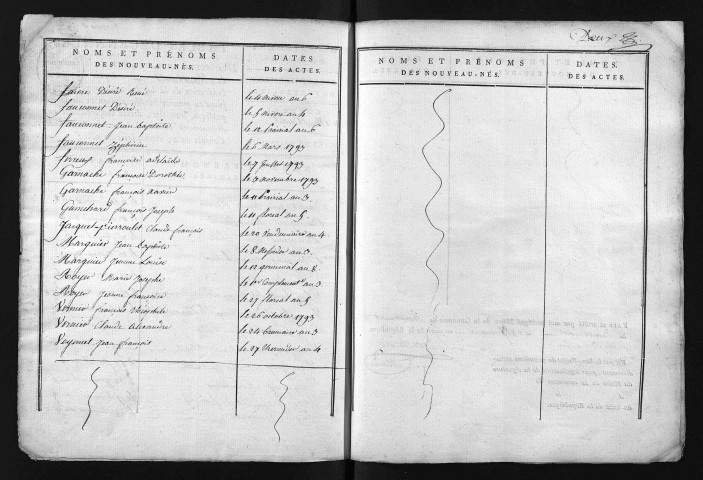 NOMS ET PRÉNOMS
DES NOUVEAU-NÉS.
DATES
DES ACTES.
Faivre Désiré René le 4 nivose an 6
Fauconnet Désiré le 5 nivose an 4
Fauconnet Jean baptiste le 12 prairial an 6
Fauconnet Zéphirin le 6 Mars 1793
françoise adelaide le 7 Juillet 1793
Garnache françoise Dorothée le 3 novembre 1793
Garnache françois Xavier le 11 prairial an 3.
françois Joseph le 11 floreal an 5.
Jacquet-pierroulet Claude françois le 20 Vendemiaire an 4
Marquier Jean baptiste le 8 Messidor an 3.
Marquier Jeanne Louise le 12 germinal an 8.
Royer Marie Josephe le 1er Complementre an 3
Royer Jeanne françoise le 27 floreal an 5
Vernier françois Théophile le 26 octobre 1793
Vernier Claude alexandre le 24 brumaire an 3
Jean françois le 27 thermidor an 4
Deux
NOMS ET PRÉNOMS
DES NOUVEAU-NÉS.
DATES.
DES ACTES.